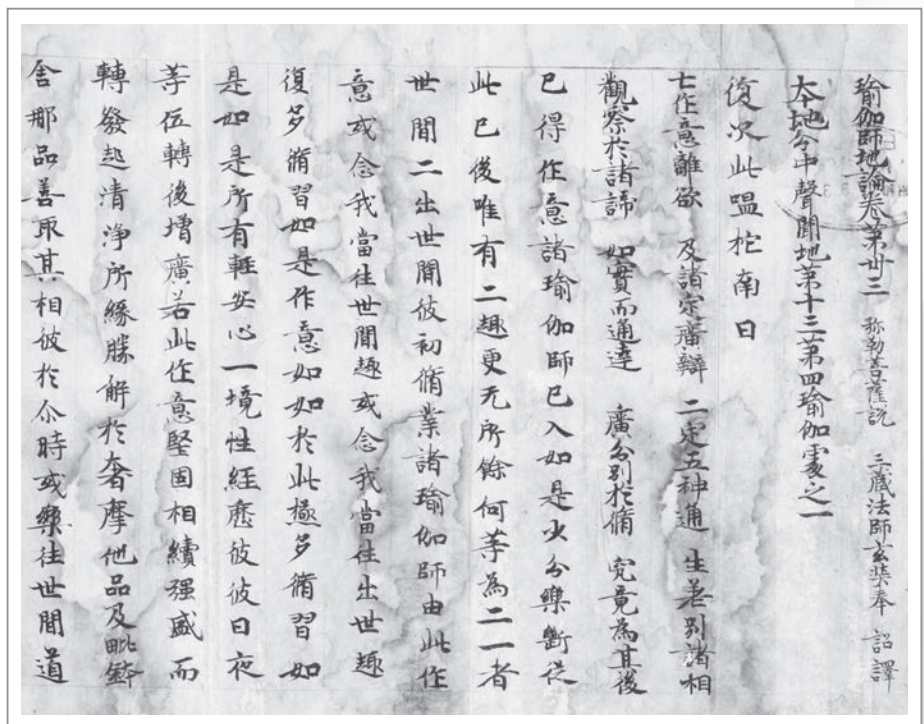 瑜伽師地論卷第卅三 弥勒菩薩説 三蔵法師玄奘奉 詔譯
夲地分中聲聞地第十三第四瑜伽處之一
復次此嗢柁南曰
七作意離欲 及諸定廣辯 二定五神通 生差別諸相
觀察於諸諦 如實而通達 廣分別於脩 究竟為其後
已得作意諸瑜伽師已入如是少分樂斷從
此已後唯有二趣更无所餘何等為二一者
世間二出世間彼初脩業諸瑜伽師由此作
意或念我當往世間趣或念我當往出世趣
復多脩習如是作意如如於此極多脩習如
是如是所有輕安心一境性經歷彼彼日夜
等位轉後增廣若此作意堅固相續强盛而
轉發起清淨所緣勝解於奢摩他品及毗鉢
舍那品善取其相彼於尒時或樂往世間道